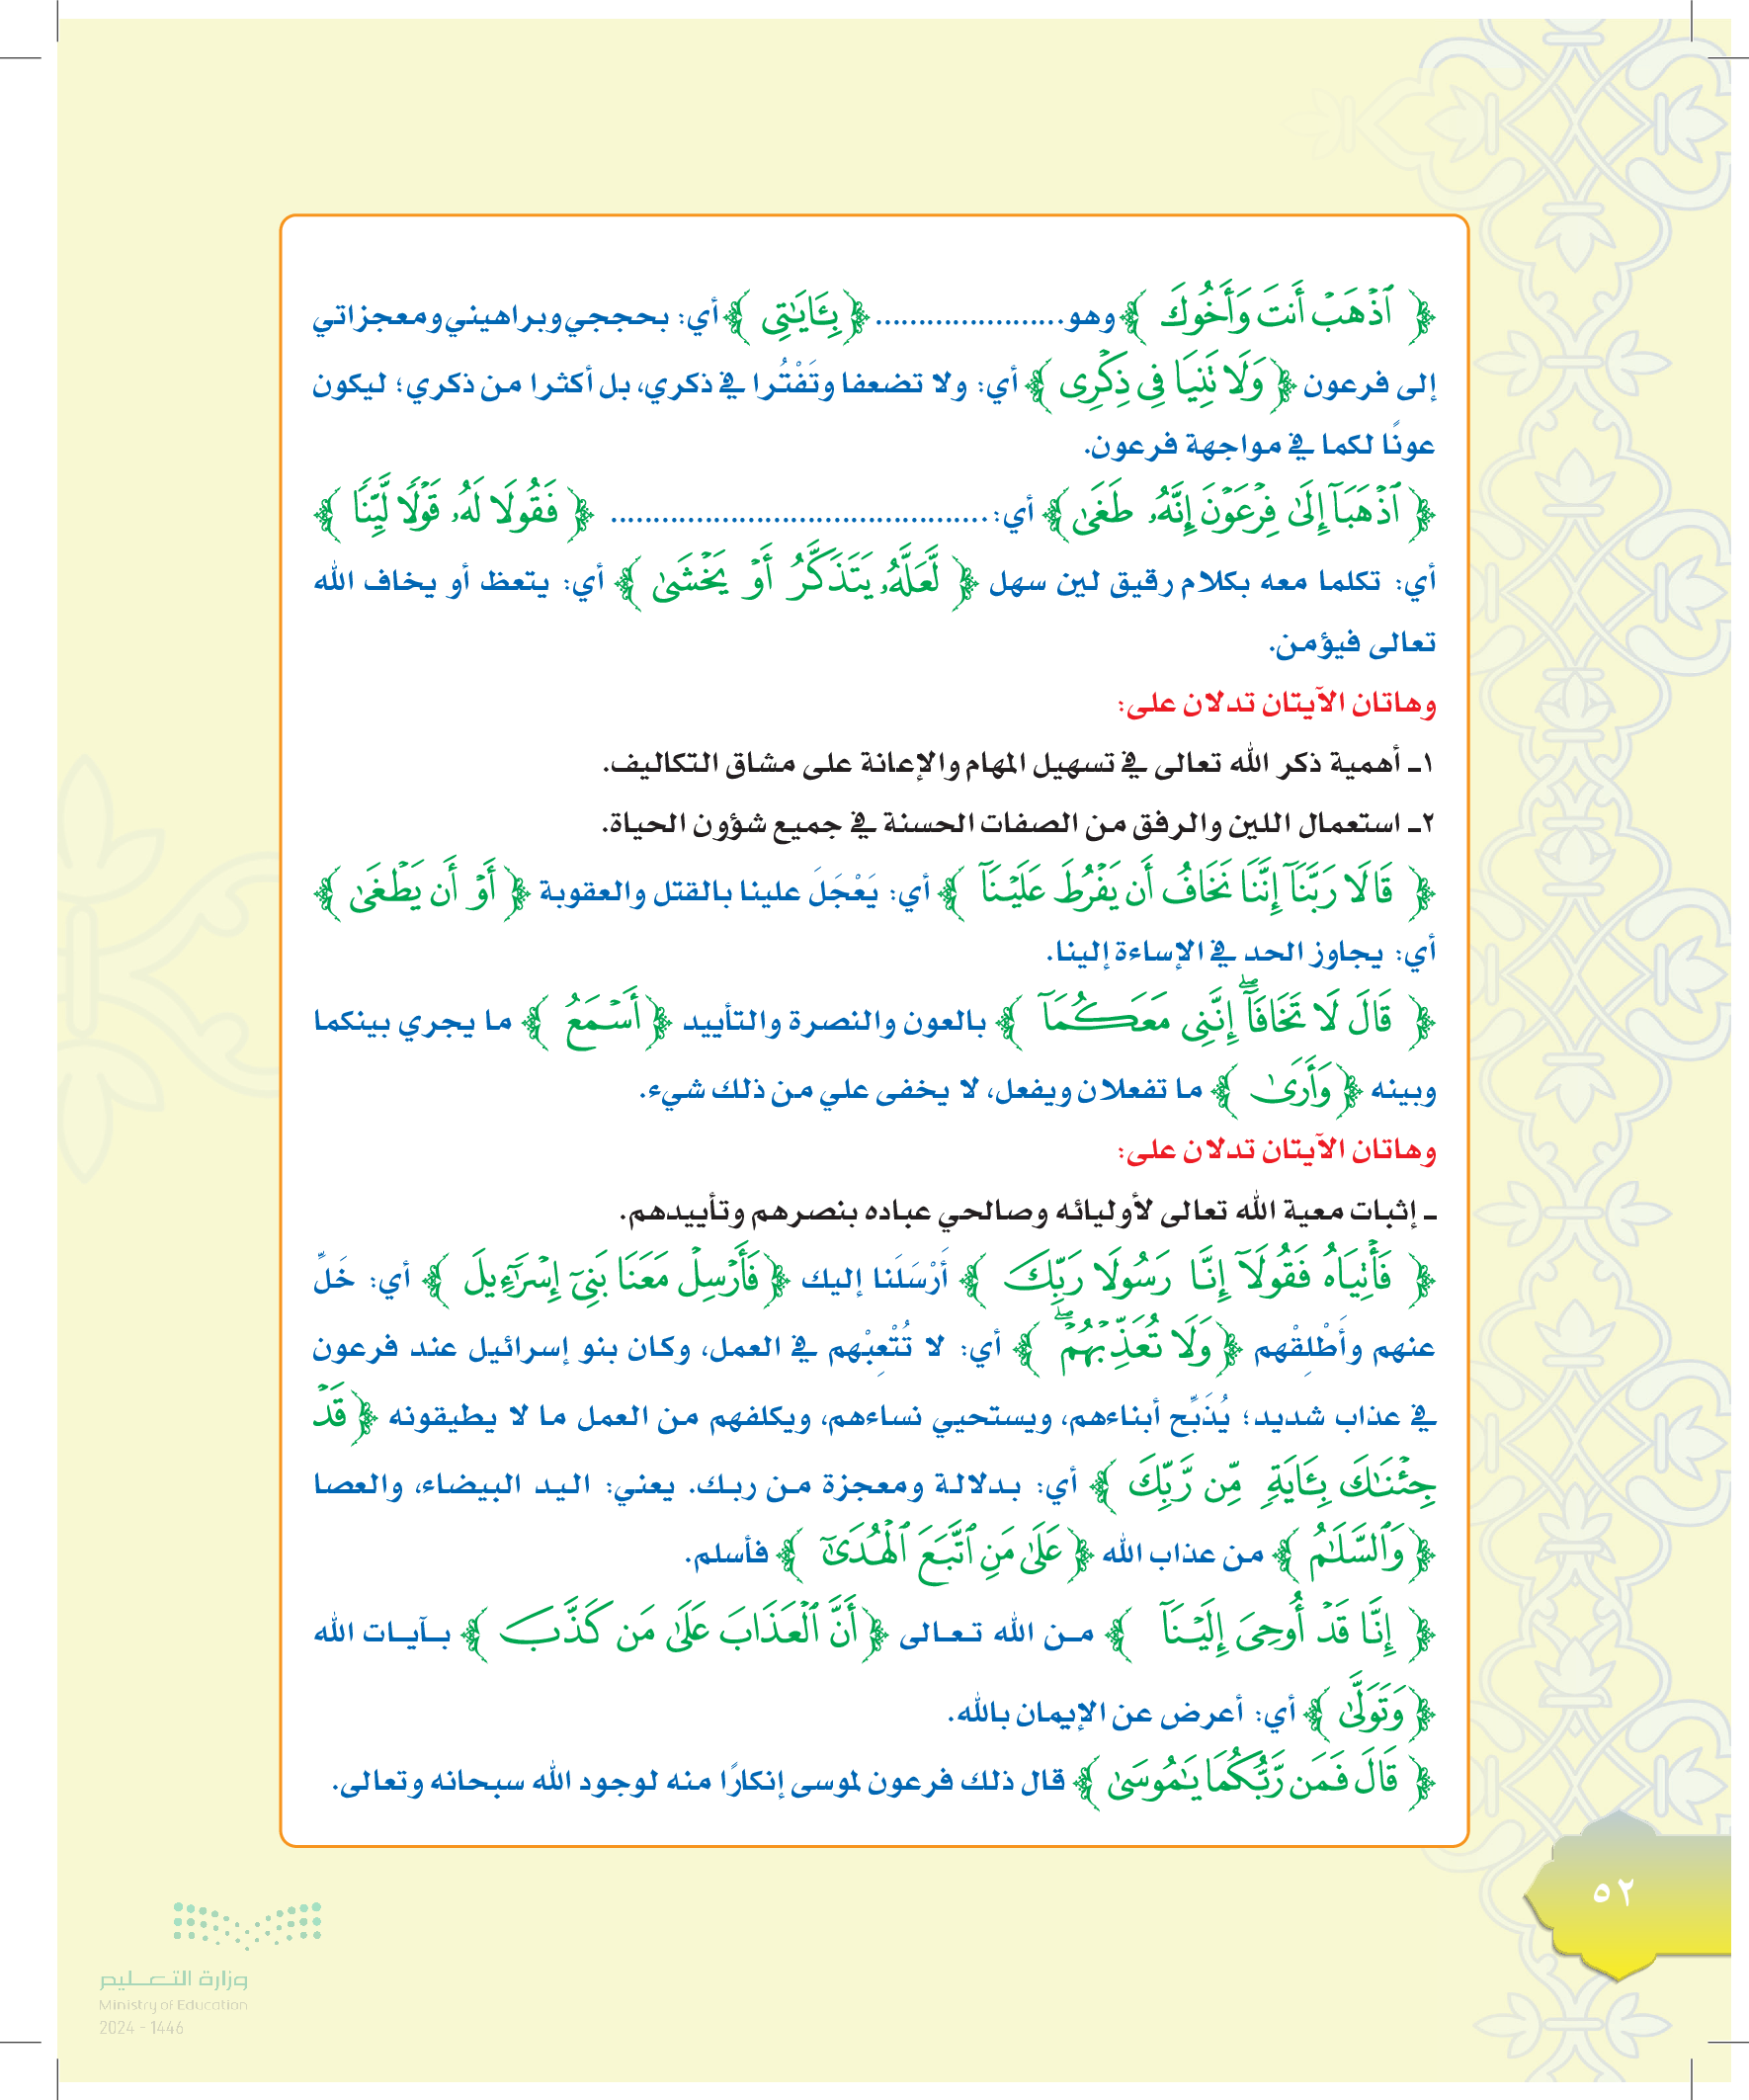 ﴿ ٱذۡهَبۡ أَنتَ وَأَخُوكَ ﴾ وهو...................... ﴿ بِـَٔايَٰتِي ﴾ أي: بحججي وبراهيني ومعجزاتي
إلى فرعون ﴿ وَلَا تَنِيَا فِي ذِكۡرِي ﴾ أي: ولا تضعفا وتَفْتُرا في ذكري، بل أكثرا من ذكري؛ ليكون
عونًا لكما في مواجهة فرعون.
﴿ ٱذۡهَبَآ إِلَىٰ فِرۡعَوۡنَ إِنَّهُۥ طَغَىٰ ﴾ أي: ............................................ ﴿ فَقُولَا لَهُۥ قَوۡلٗا لَّيِّنٗا ﴾
أي: تكلما معه بكلام رقيق لين سهل ﴿ لَّعَلَّهُۥ يَتَذَكَّرُ أَوۡ يَخۡشَىٰ ﴾ أي: يتعظ أو يخاف الله
تعالى فيؤمن.
وهاتان الآيتان تدلان على:
١ـ أهمية ذكر الله تعالى في تسهيل المهام والإعانة على مشاق التكاليف.
٢ـ استعمال اللين والرفق من الصفات الحسنة في جميع شؤون الحياة.
﴿ قَالَا رَبَّنَآ إِنَّنَا نَخَافُ أَن يَفۡرُطَ عَلَيۡنَآ ﴾ أي: يَعْجَلَ علينا بالقتل والعقوبة ﴿ أَوۡ أَن يَطۡغَىٰ ﴾
أي: يجاوز الحد في الإساءة إلينا.
﴿ قَالَ لَا تَخَافَآۖ إِنَّنِي مَعَكُمَآ ﴾ بالعون والنصرة والتأييد ﴿ أَسۡمَعُ ﴾ ما يجري بينكما
وبينه ﴿ وَأَرَىٰ ﴾ ما تفعلان ويفعل، لا يخفى علي من ذلك شيء.
وهاتان الآيتان تدلان على:
ـ إثبات معية الله تعالى لأوليائه وصالحي عباده بنصرهم وتأييدهم.
﴿ فَأۡتِيَاهُ فَقُولَآ إِنَّا رَسُولَا رَبِّكَ ﴾ أَرْسَلَنا إليك ﴿ فَأَرۡسِلۡ مَعَنَا بَنِيٓ إِسۡرَٰٓءِيلَ ﴾ أي: خَلِّ
عنهم وأَطْلِقْهم ﴿ وَلَا تُعَذِّبۡهُمۡۖ ﴾ أي: لا تُتْعِبْهم في العمل، وكان بنو إسرائيل عند فرعون
في عذاب شديد؛ يُذَبِّح أبناءهم، ويستحيي نساءهم، ويكلفهم من العمل ما لا يطيقونه ﴿ قَدۡ
جِئۡنَٰكَ بِـَٔايَةٖ مِّن رَّبِّكَ ﴾ أي: بدلالة ومعجزة من ربك. يعني: اليد البيضاء، والعصا
﴿ وَٱلسَّلَٰمُ ﴾ من عذاب الله ﴿ عَلَىٰ مَنِ ٱتَّبَعَ ٱلۡهُدَىٰٓ ﴾ فأسلم.
﴿ إِنَّا قَدۡ أُوحِيَ إِلَيۡنَآ ﴾ من الله تعالى ﴿ أَنَّ ٱلۡعَذَابَ عَلَىٰ مَن كَذَّبَ ﴾ بآيات الله
﴿ وَتَوَلَّىٰ ﴾ أي: أعرض عن الإيمان بالله.
﴿ قَالَ فَمَن رَّبُّكُمَا يَٰمُوسَىٰ ﴾ قال ذلك فرعون لموسى إنكارًا منه لوجود الله سبحانه وتعالى.
٥٢
وزارة التعليم
Ministry of Education
2024 - 1446